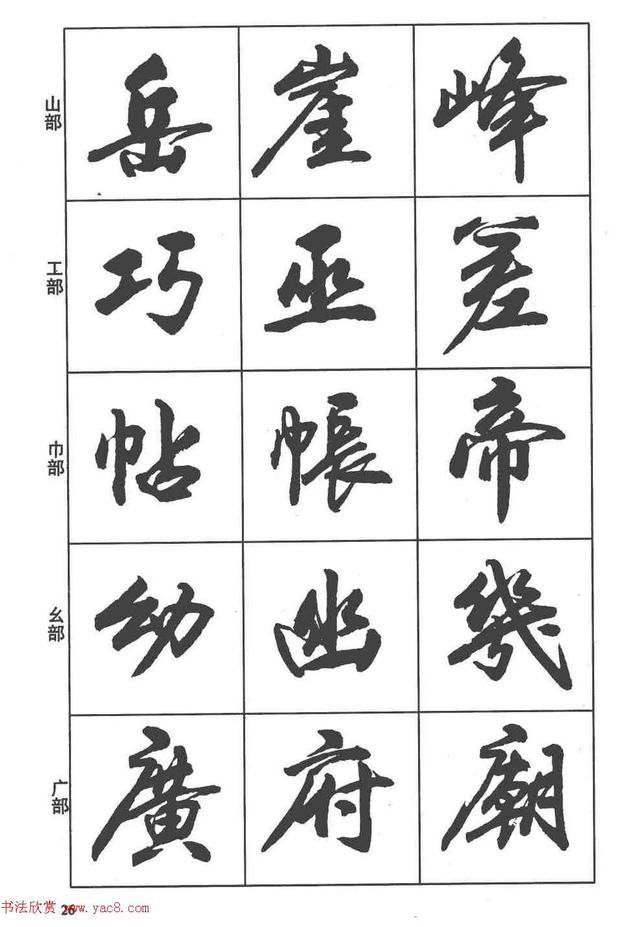 山部 岳 崖 峰
工部 巧 巫 差
巾部 帖 帳 帝
幺部 幼 幽 幾
广部 廣 府 廟
书法欣赏 26 www.yac8.com